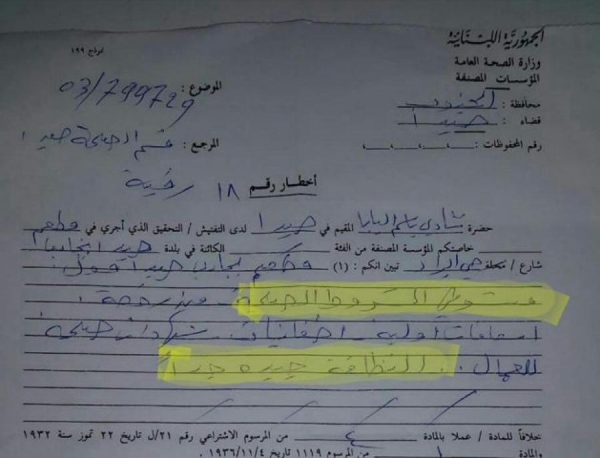 الجمهورية اللبنانية
وزارة الصحة العامة
المؤسسات المصنفة
نموذج ١٩٩
محافظة : الجنوب
الموضوع : 03/799729
قضاء : صيدا
رقم المحفوظات :
المرجع : قسم الصحة صيدا
أخطار رقم ١٨
حضرة شادي باسم البابا المقيم في صيدا لدى التفتيش / التحقيق الذي أجري في مطعم
خاصتكم المؤسسة المصنفة من الفئة الكائنة في بلدة صيدا
شارع / محلة تبين انكم : (١) مطعم صيدا
مستوفي الشروط الصحية
اسعافات اولية . اطفائيات . شهادات صحية
للعمال . النظافة جيدة جدا
خلافاً للمادة / عملا بالمادة ٤ من المرسوم الاشتراعي رقم ٢١/ل تاريخ ٢٢ تموز سنة ١٩٣٢
والمادة ١ من المرسوم ١١١٩ تاريخ ١٩٣٦/١١/٤ .